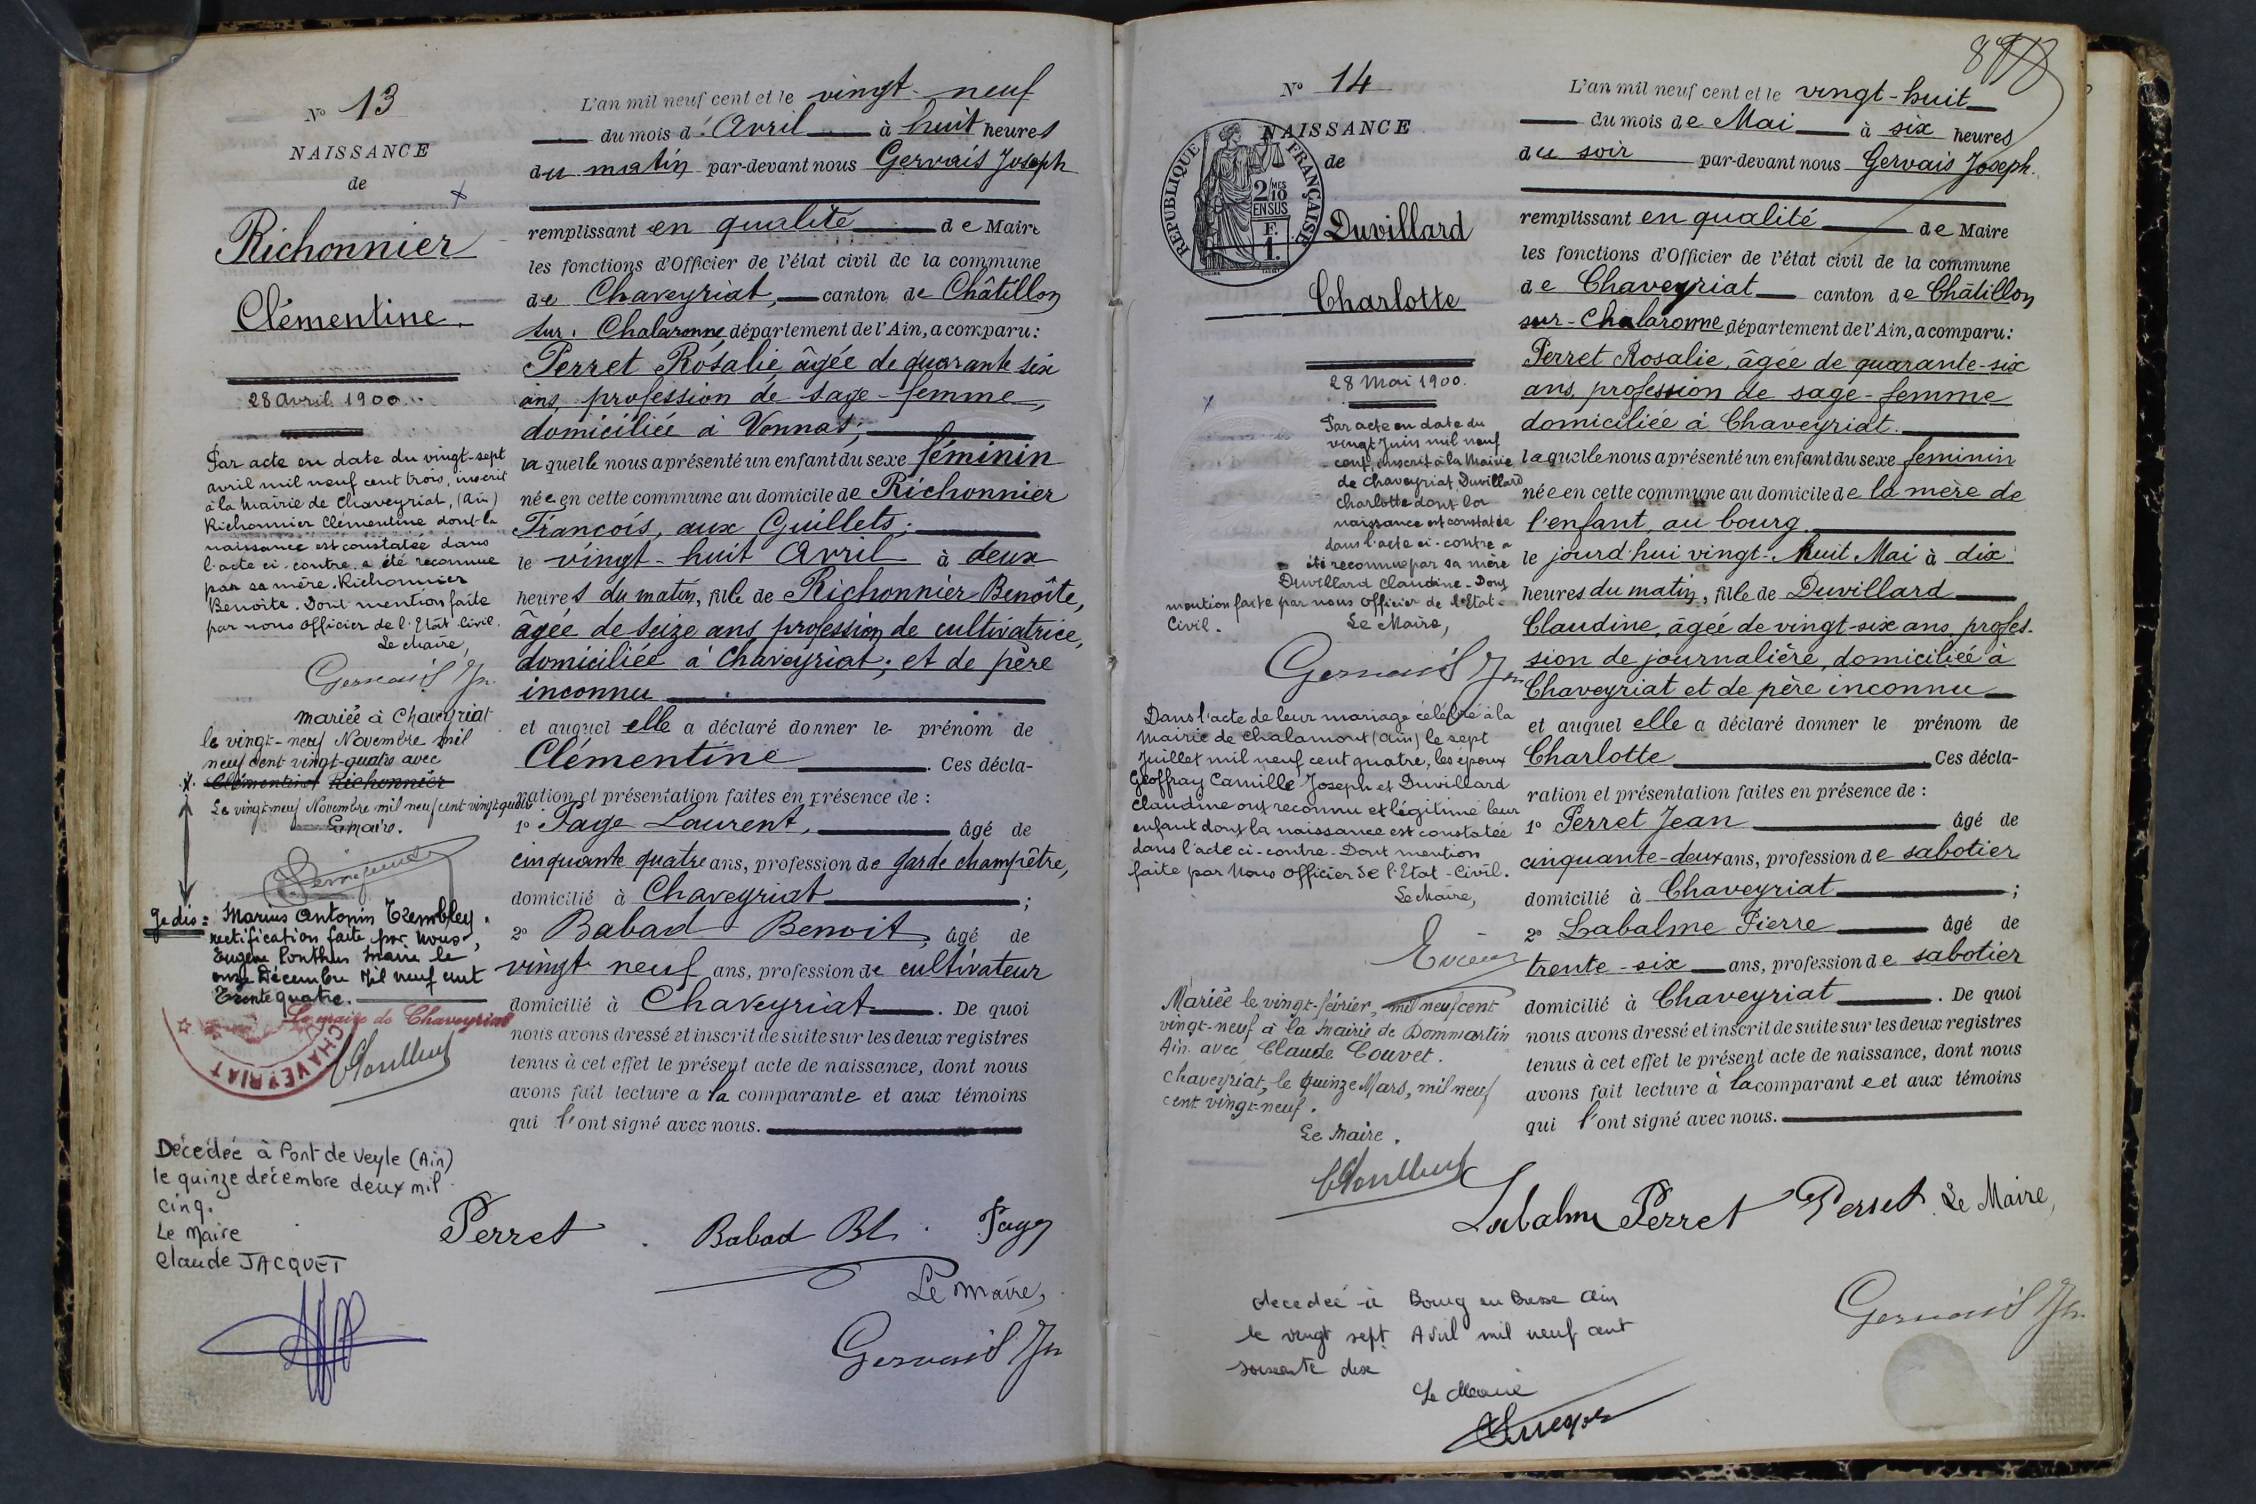 N° 13
NAISSANCE
de
Richonnier
Clémentine
28 Avril 1900
Par acte en date du vingt-sept
avril mil neuf cent trois, inscrit
à la Mairie de Chaveyriat, (Ain)
Richonnier Clémentine dont la
naissance est constatée dans
l'acte ci-contre a été reconnue
par sa mère Richonnier
Benoite. Dont mention faite
par nous officier de l'Etat Civil.
Le Maire,
Gervais Jh
Mariée à Chaveyriat
le vingt-neuf Novembre mil
neuf cent vingt-quatre avec
Clémentine Richonnier
Le vingt-neuf Novembre mil neuf cent vingt-quatre
Le Maire.
Je dis : Marius Antonin Trembley.
rectification faite par Nous,
Eugène Ponthus Maire le
onze Décembre Mil neuf cent
Trente quatre.
Le maire de Chaveyriat
CHAVEYRIAT
Décédée à Pont de Veyle (Ain)
le quinze décembre deux mil
cinq.
Le Maire
Claude JACQUET
L'an mil neuf cent et le vingt-neuf
du mois d'Avril à huit heures
du matin par-devant nous Gervais Joseph
remplissant en qualité de Maire
les fonctions d'Officier de l'état civil de la commune
de Chaveyriat, canton de Châtillon
sur-Chalaronne, département de l'Ain, a comparu :
Perret Rosalie, âgée de quarante six
ans, profession de sage-femme,
domiciliée à Vonnas;
laquelle nous a présenté un enfant du sexe féminin
née en cette commune au domicile de Richonnier
François, aux Guillets;
le vingt-huit Avril à deux
heures du matin, fille de Richonnier Benoîte,
âgée de seize ans, profession de cultivatrice,
domiciliée à Chaveyriat; et de père
inconnu
et auquel elle a déclaré donner le prénom de
Clémentine. Ces décla-
ration et présentation faites en présence de :
1° Page Laurent, âgé de
cinquante quatre ans, profession de garde champêtre,
domicilié à Chaveyriat;
2° Babad Benoit, âgé de
vingt neuf ans, profession de cultivateur
domicilié à Chaveyriat. De quoi
nous avons dressé et inscrit de suite sur les deux registres
tenus à cet effet le présent acte de naissance, dont nous
avons fait lecture a la comparante et aux témoins
qui l'ont signé avec nous.
Perret Babad Bt Page
Le Maire,
Gervais Jh
N° 14
NAISSANCE
de
RÉPUBLIQUE FRANÇAISE
2/10 MES
EN SUS
F.
1.
Duvillard
Charlotte
28 Mai 1900.
Par acte en date du
vingt Juin mil neuf
cent, inscrit à la Mairie
de Chaveyriat Duvillard
Charlotte dont la
naissance est constatée
dans l'acte ci-contre a
été reconnue par sa mère
Duvillard Claudine. Dont
mention faite par nous Officier de l'Etat-
Civil.
Le Maire,
Gervais Jh
Dans l'acte de leur mariage célébré à la
Mairie de Chalamont (Ain) le sept
Juillet mil neuf cent quatre, les époux
Geoffray Camille Joseph et Duvillard
Claudine ont reconnu et légitimé leur
enfant dont la naissance est constatée
dans l'acte ci-contre. Dont mention
faite par Nous Officier de l'Etat-Civil.
Le Maire,
Mariée le vingt-février, mil neuf cent
vingt-neuf à la Mairie de Dommartin
Ain avec Claude Couvet.
Chaveyriat, le quinze Mars, mil neuf
cent vingt-neuf.
Le Maire.
L'an mil neuf cent et le vingt-huit
du mois de Mai à six heures
du soir par-devant nous Gervais Joseph.
remplissant en qualité de Maire
les fonctions d'Officier de l'état civil de la commune
de Chaveyriat canton de Châtillon
sur-Chalaronne, département de l'Ain, a comparu :
Perret Rosalie, âgée de quarante-six
ans, profession de sage-femme
domiciliée à Chaveyriat.
laquelle nous a présenté un enfant du sexe féminin
née en cette commune au domicile de la mère de
l'enfant, au bourg.
le jourd'hui vingt-huit Mai à dix
heures du matin, fille de Duvillard
Claudine, âgée de vingt-six ans, profes-
sion de journalière, domiciliée à
Chaveyriat et de père inconnu
et auquel elle a déclaré donner le prénom de
Charlotte Ces décla-
ration et présentation faites en présence de :
1° Perret Jean âgé de
cinquante-deux ans, profession de sabotier
domicilié à Chaveyriat;
2° Labalme Pierre âgé de
trente-six ans, profession de sabotier
domicilié à Chaveyriat. De quoi
nous avons dressé et inscrit de suite sur les deux registres
tenus à cet effet le présent acte de naissance, dont nous
avons fait lecture à la comparante et aux témoins
qui l'ont signé avec nous.
Labalme Perret Perret. Le Maire,
Gervais Jh.
decedée à Bourg en Bresse Ain
le vingt sept Avril mil neuf cent
soixante dix
Le Maire